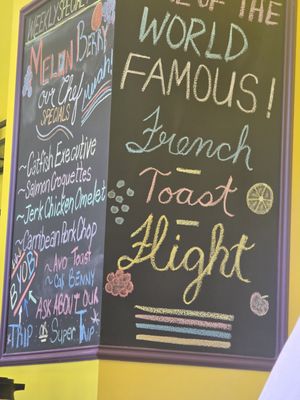 WEEKLY SPECIAL
MELON BERRY
OUR Chef
SPECIALS
~Catfish Executive
~Salmon Croquettes
~Jerk Chicken Omelet
~Carribean Pork Chop
~ AVO TOAST
~ Cali BENNY
BYOB
ASK ABOUT OUR
TRIP Super TRIP
OF THE
WORLD
FAMOUS!
French
Toast
Flight